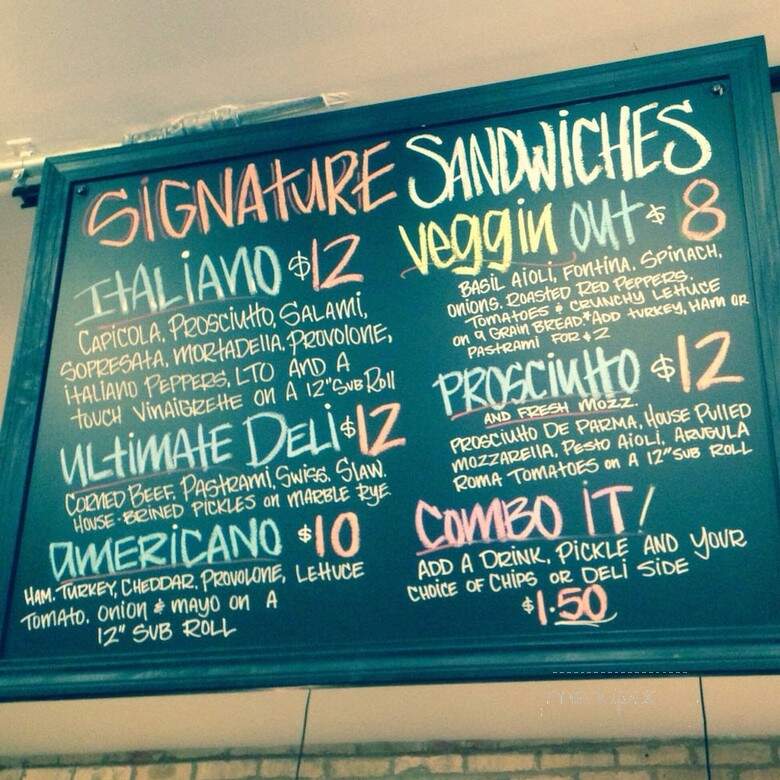 SIGNATURE SANDWICHES
ITALIANO $12
CAPICOLA, PROSCIUTTO, SALAMI,
SOPRESATA, MORTADELLA, PROVOLONE,
ITALIANO PEPPERS, LTO AND A
TOUCH VINAIGRETTE ON A 12" SUB ROLL
ULTIMATE DELI $12
CORNED BEEF, PASTRAMI, SWISS, SLAW,
HOUSE-BRINED PICKLES ON MARBLE RYE
AMERICANO $10
HAM, TURKEY, CHEDDAR, PROVOLONE, LETTUCE
TOMATO, ONION & MAYO ON A
12" SUB ROLL
Veggin out $8
BASIL AIOLI, FONTINA, SPINACH,
ONIONS, ROASTED RED PEPPERS,
TOMATOES & CRUNCHY LETTUCE
ON 9 GRAIN BREAD. *ADD TURKEY, HAM OR
PASTRAMI FOR $2
PROSCIUTTO $12
AND FRESH MOZZ.
PROSCIUTTO DE PARMA, HOUSE PULLED
MOZZARELLA, PESTO AIOLI, ARUGULA
ROMA TOMATOES ON A 12" SUB ROLL
COMBO IT!
ADD A DRINK, PICKLE AND YOUR
CHOICE OF CHIPS OR DELI SIDE
$1.50